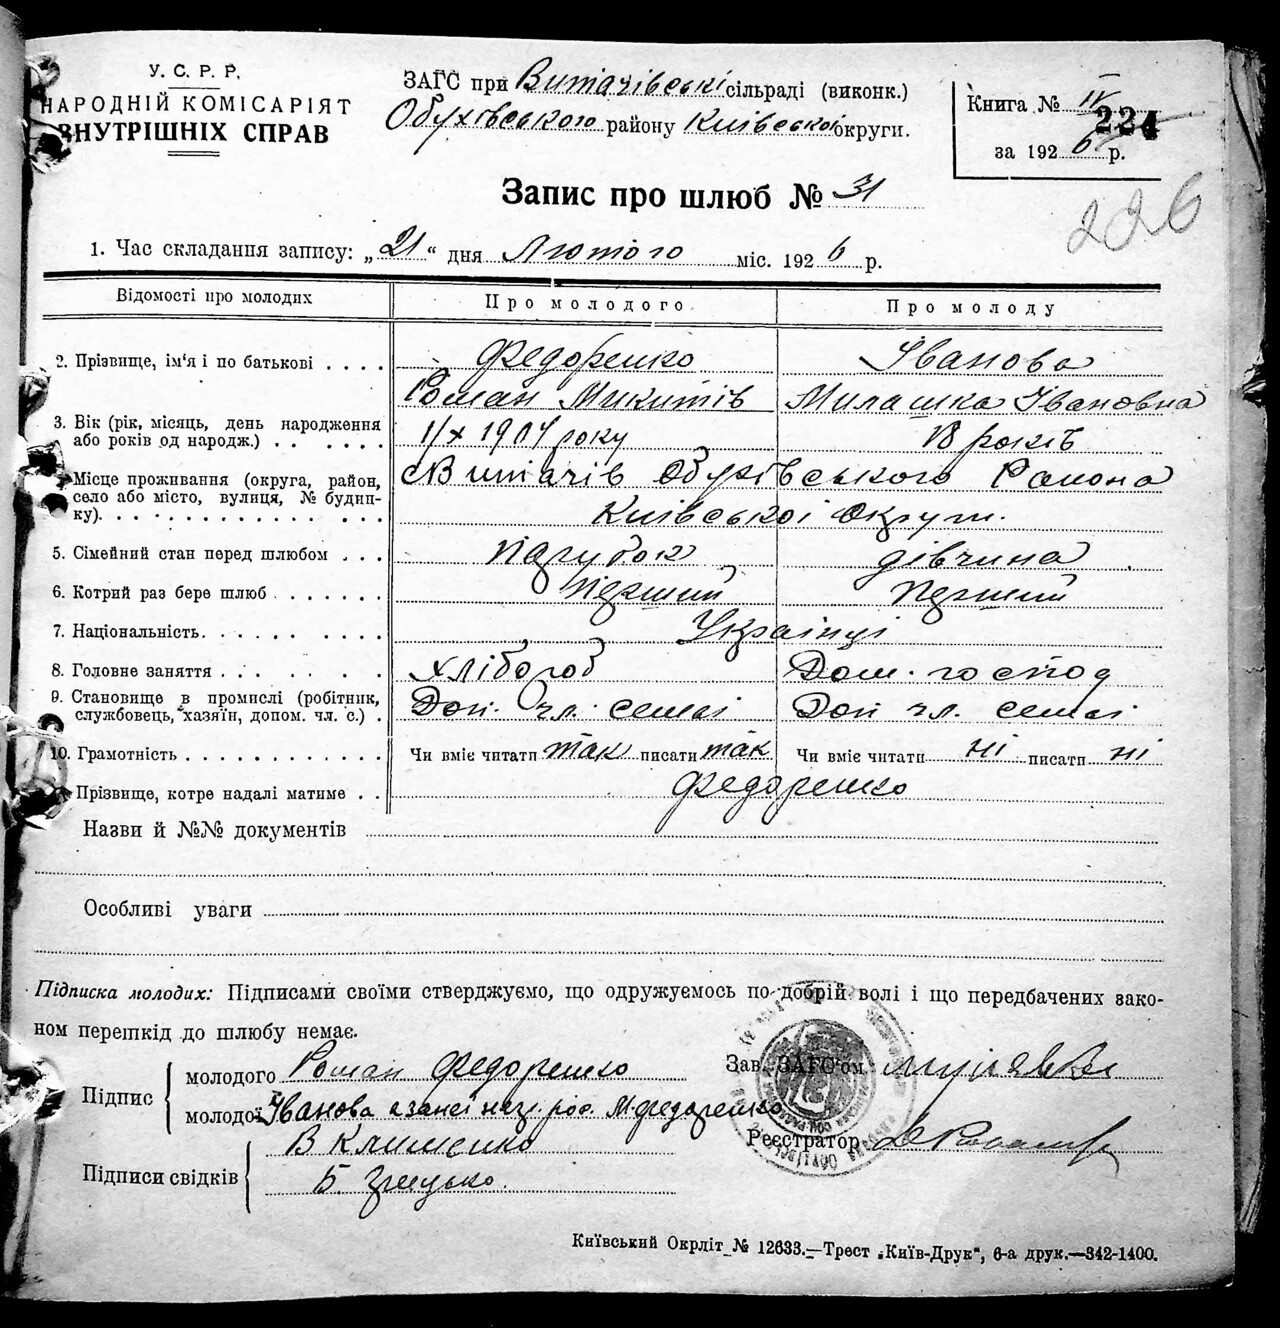 У. С. Р. Р.
НАРОДНІЙ КОМІСАРІЯТ
ВНУТРІШНІХ СПРАВ
ЗАГС при Витачівські сільраді (виконк.)
Обухівського району Київської округи.
Книга № IV
224
за 1926 р.
226
Запис про шлюб № 31
1. Час складання запису: „21“ дня Лютого міс. 1926 р.
Відомості про молодих Про молодого. Про молоду
2. Прізвище, ім'я і по батькові . . . . Федоренко Іванова
Роман Микитів Милашка Івановна
3. Вік (рік, місяць, день народження
або років од народж.) . . . . . . 1/X 1904 року 18 років
Місце проживання (округа, район,
село або місто, вулиця, № будин-
ку). . . . . . . . . . . . . .
с Витачів Обухівського Раиона
Київської Округи.
5. Сімейний стан перед шлюбом . . . парубок дівчина
6. Котрий раз бере шлюб . . . . . . . Перший Перший
7. Національність. . . . . . . . . . Українці
8. Головне заняття . . . . . . . . Хлібороб Дом. господ
9. Становище в промислі (робітник,
службовець, хазяїн, допом. чл. с.) . Доп. чл. семьі Доп чл. семьі
10. Грамотність . . . . . . . . . . . . Чи вміє читати так писати так Чи вміє читати ні писати ні
Прізвище, котре надалі матиме . . Федоренко
Назви й №№ документів
Особливі уваги
Підписка молодих: Підписами своїми стверджуємо, що одружуємось по добрій волі і що передбачених зако-
ном перешкід до шлюбу немає.
Підпис
молодого Роман Федоренко
молодої Іванова М. Федоренко
Підписи свідків
В Клименко
Зав. ЗАГС'ом
Реєстратор
Київський Окрліт № 12633.—Трест „Київ-Друк“, 6-а друк.—342-1400.